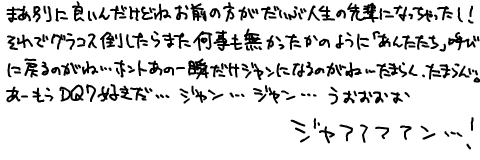 まあ別に良いんだけどねお前の方がだいぶ人生の先輩になっちゃたし!
それでグラコス倒したらまた何事も無かったかのように「あんたたち」呼び
に戻るのがね…ホントあの一瞬だけジャンになるのがね…たまらん、たまらんぜ。
あーもうDQ7好きだ…ジャン…ジャン…うおおおお
ジャアアアアン…!